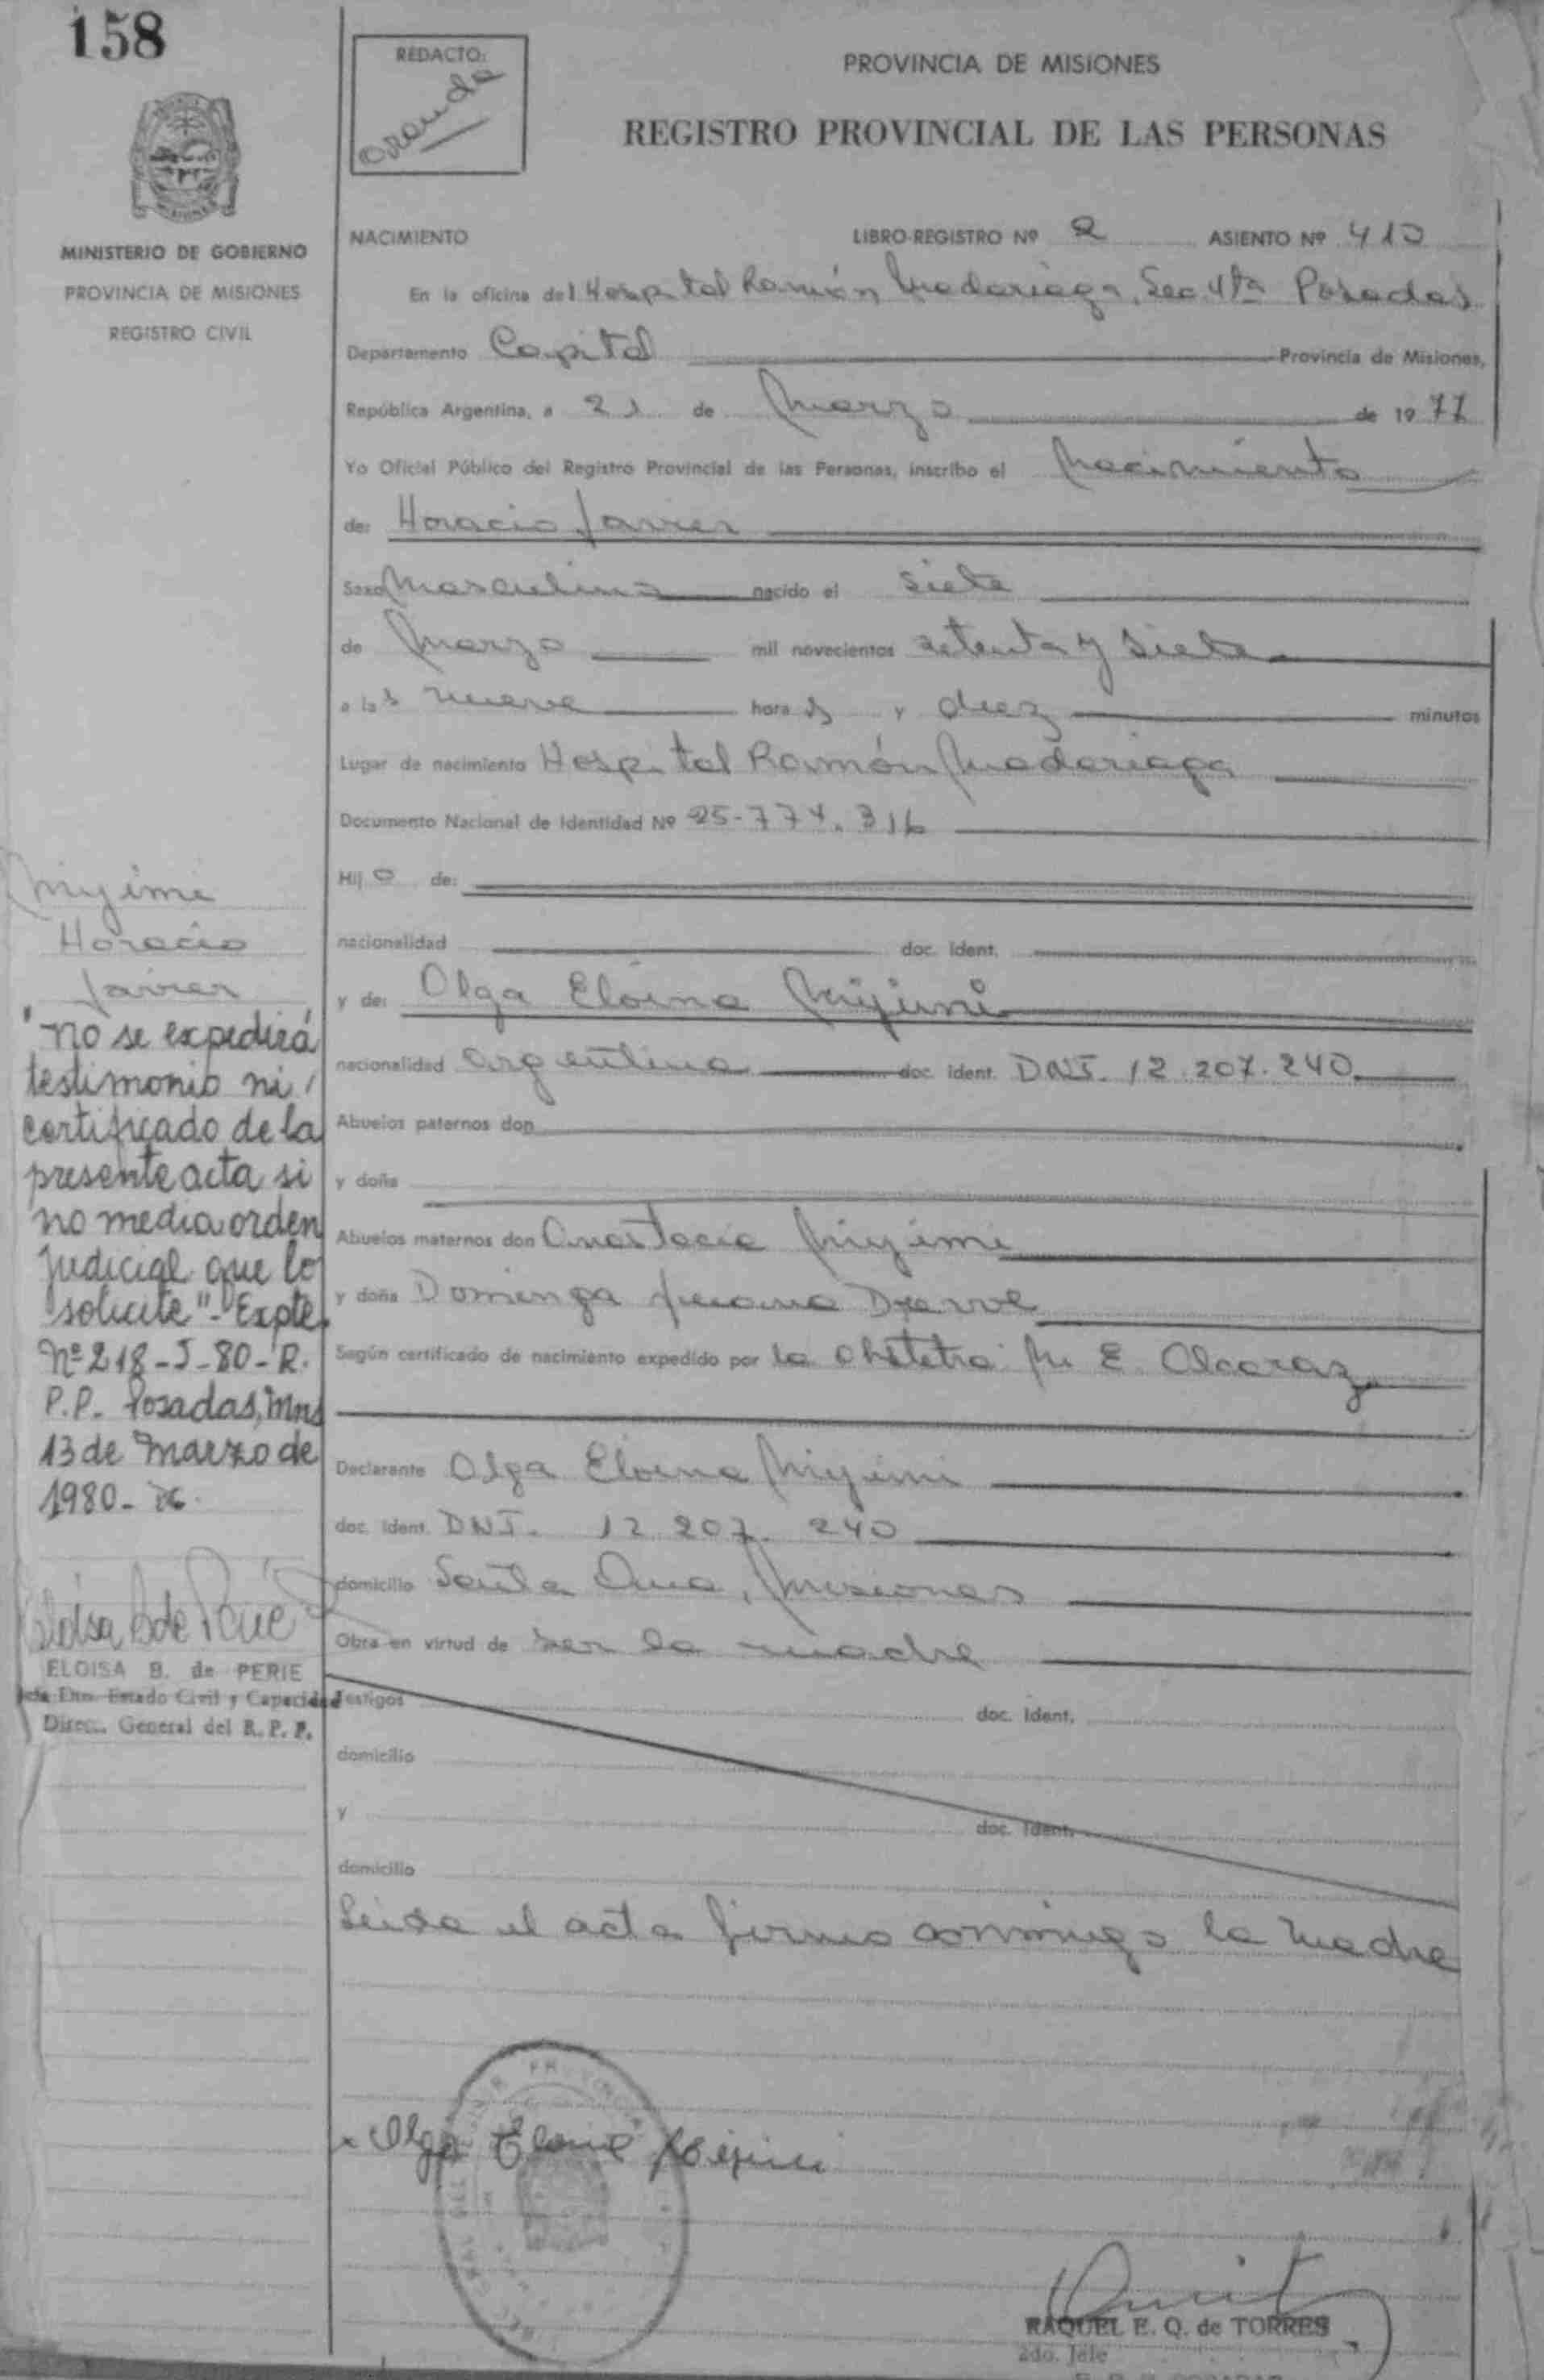 158
REDACTO:
PROVINCIA DE MISIONES
REGISTRO PROVINCIAL DE LAS PERSONAS
MINISTERIO DE GOBIERNO
PROVINCIA DE MISIONES
REGISTRO CIVIL
NACIMIENTO LIBRO-REGISTRO Nº 2 ASIENTO Nº 410
En la oficina del Hospital Ramón Madariaga, Sec. 4ta Posadas
Departamento Capital Provincia de Misiones,
República Argentina, a 21 de Marzo de 1977
Yo Oficial Público del Registro Provincial de las Personas, inscribo el Nacimiento
de: Horacio Javier
Sexo Masculino nacido el siete
de Marzo mil novecientos setenta y siete
a las nueve horas y diez minutos
Lugar de nacimiento Hospital Ramón Madariaga
Documento Nacional de Identidad Nº 25-774.316
Hijo de:
nacionalidad doc. Ident.
y de: Olga Eloina
nacionalidad argentina doc. ident. DNI. 12.207.240
Abuelos paternos don
y doña
Abuelos maternos don
y doña Dominga
Según certificado de nacimiento expedido por la Obstetra M. E. Alcaraz
Declarante Olga Eloina
doc. Ident. DNI. 12.207.240
domicilio Santa Ana, Misiones
Obra en virtud de ser la madre
Testigos doc. Ident.
domicilio
y doc. Ident.
domicilio
Leida el acta firma conmigo la Madre
Horacio
Javier
"no se expedirá
testimonio ni
certificado de la
presente acta si
no media orden
Judicial que lo
solicite"- Expte.
Nº 218-J-80-R.
P.P. Posadas, Mns
13 de Marzo de
1980-
ELOISA B. de PERIE
Jefa Dto. Estado Civil y Capacidad
Direc. General del R. P. P.
Olga
RAQUEL E. Q. de TORRES
2do. Jefe